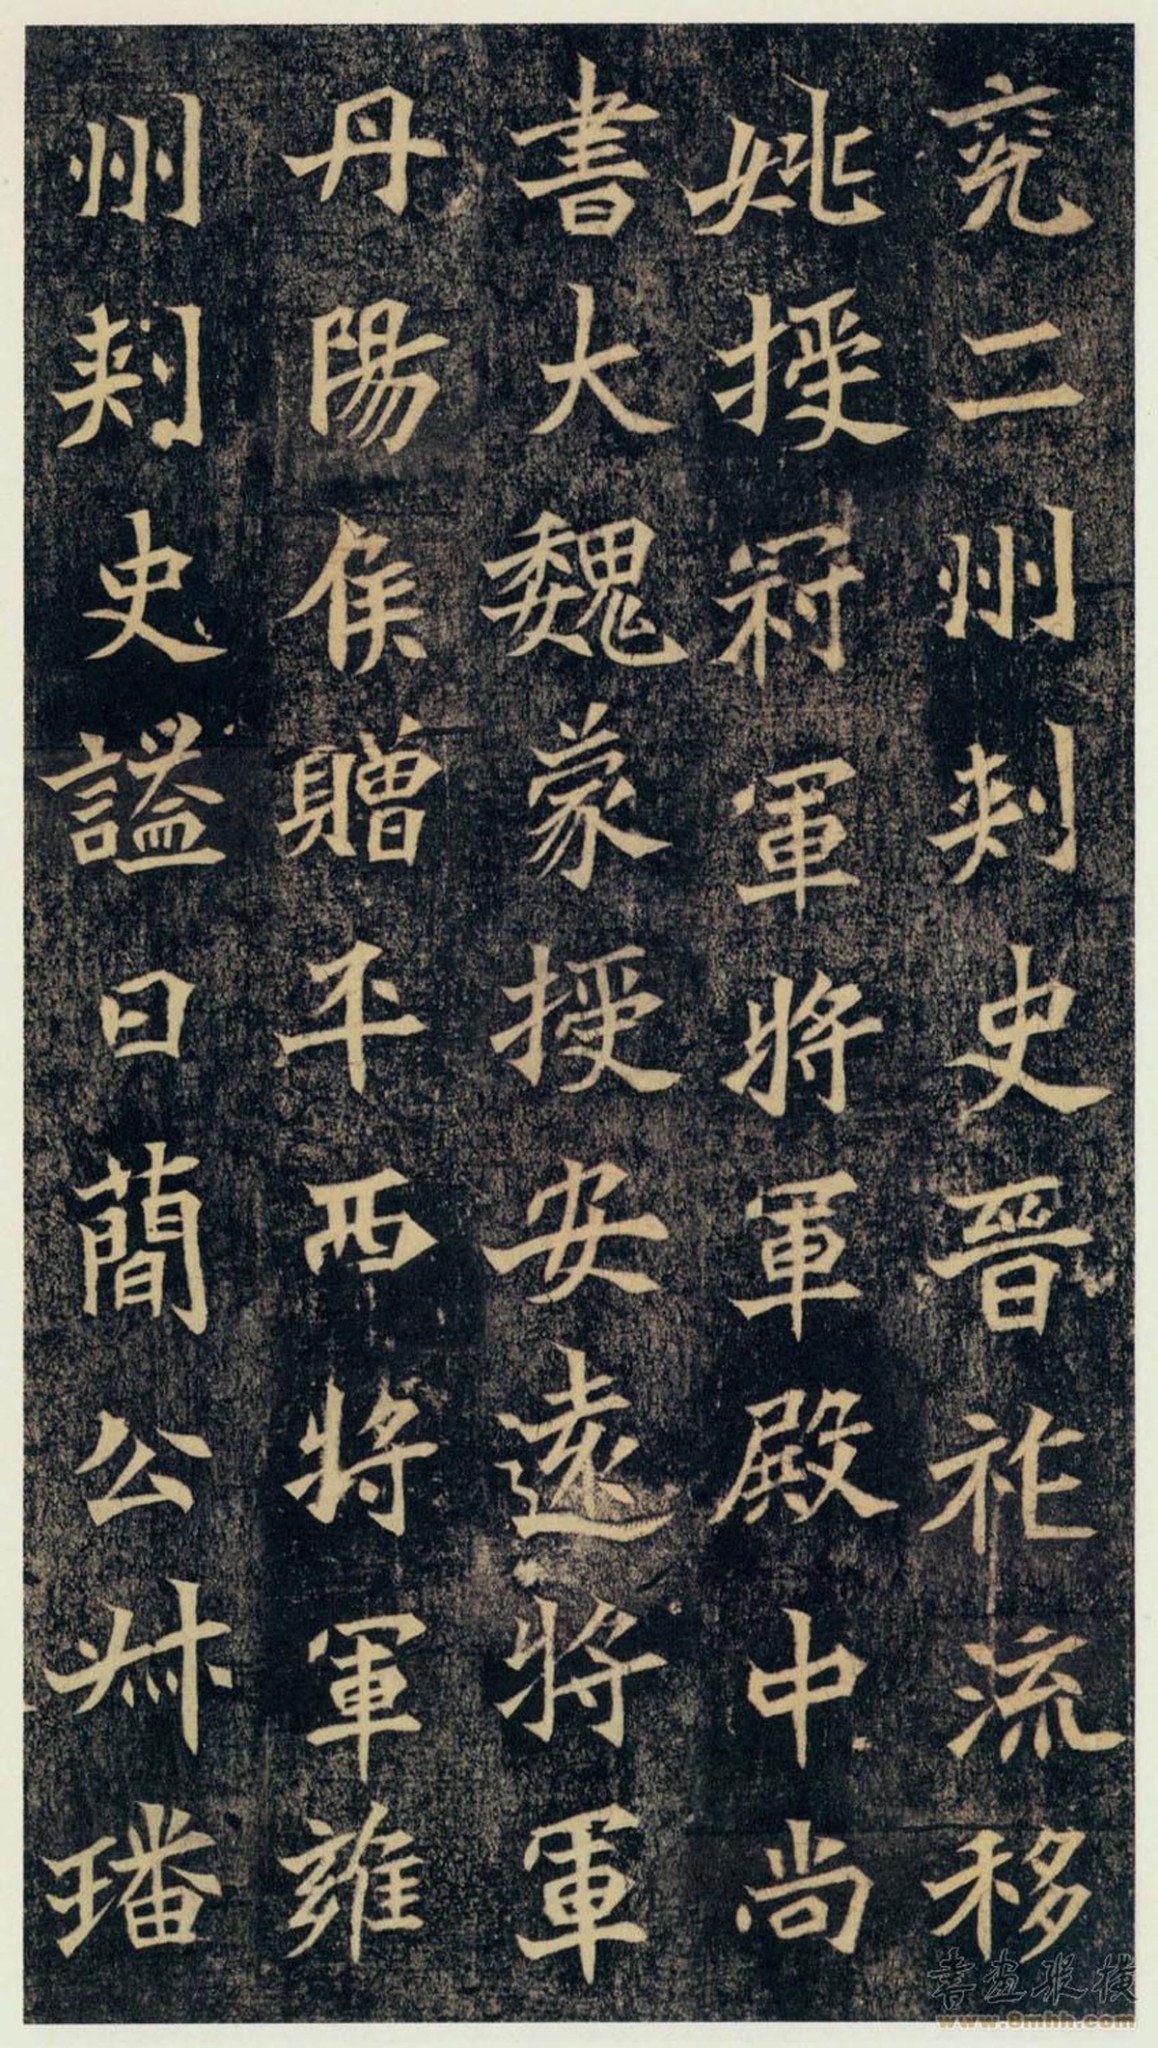 兖二州刺史晉祚流移
姚授冠軍將軍殿中尚
書大魏蒙授安遠將軍
丹陽侯贈平西將軍雍
州刺史謚曰蕳公叔璠
書畫縱橫
www.8mhh.com